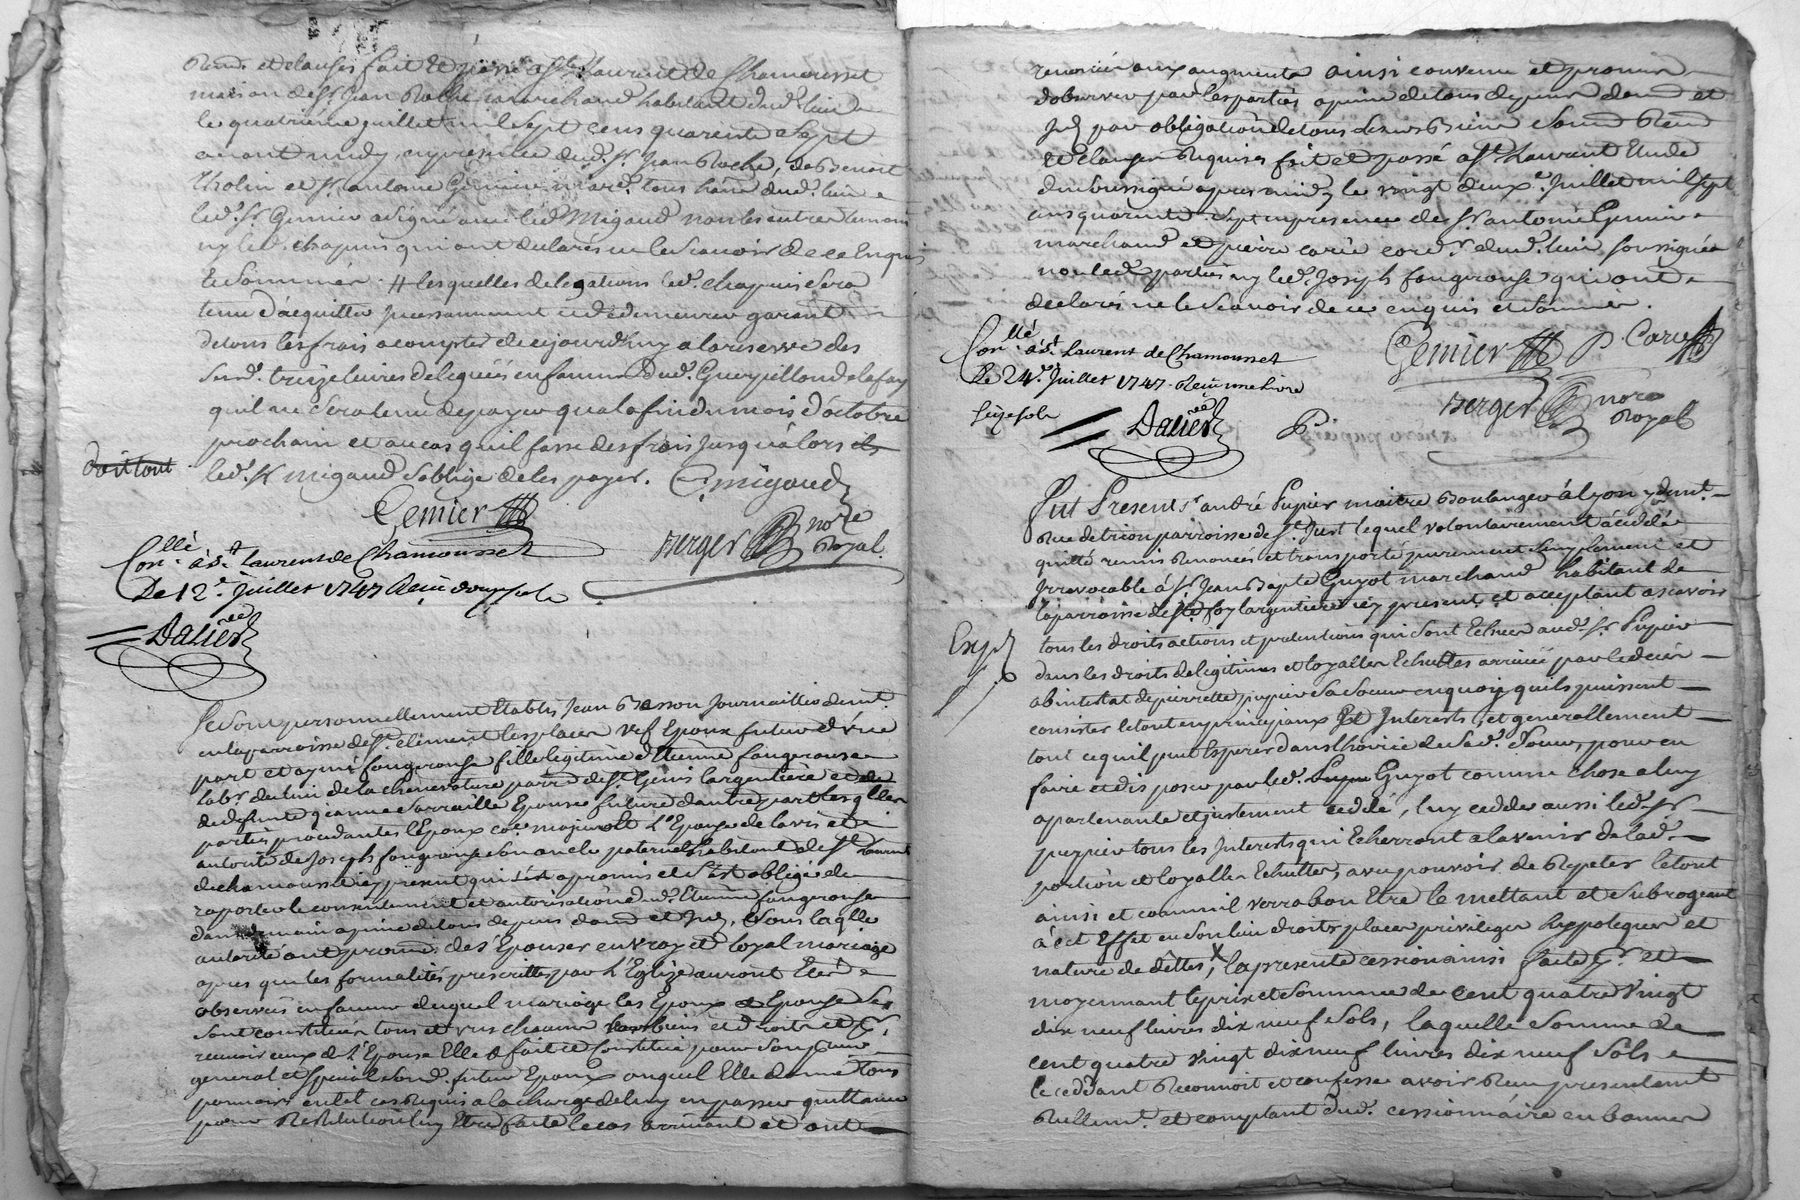 et clauses fait et passé a St Laurent de Chamousset
maison de Sr. Jean Roche marchand habitant dud. lieu
le quatrieme juillet mil sept cens quarente sept
avant midy, en presence dud. Sr. Jean Roche, de Benoit
Tholin et Sr. antoine Gemier mard. tous dud. lieu
led. Sr. Gemier a signé avec led. Migaud non les autres temoins
ny led. chapuis qui ont declarés ne le scavoir de ce enquis
et sommés. # lesquelles delegations led. chapuis sera
tenu d'acquitter incessamment et de demeurer garent
de tous les frais a compter de cejourdhuy a la reserve des
susd. treize livres deleguées en faveur dud.
qu'il ne sera tenu de payer qu'a la fin du mois d'octobre
prochain et au cas qu'il fasse des frais jusqu'a lors
doit tout
led. Sr. migaud s'oblige de les payer. C. migaud
Gemier
Berger nore
Royal
Conllé. à St. Laurent de Chamousset
Le 12e. Juillet 1747 Reçu douze sols
Dalier
Se sont personnellement Etablis Jean Basson Journaillier demt.
en la parroisse de St. clement les places vef Epoux futur d'une
part et aymé fougerouse fille legitime d'Etienne fougerouse
labr. du lieu de la cheneviature parr. de St. Genis largentiere et de
deffunte jeanne Sarraille Epouse future d'autre part lesqlles
parties procedantes l'Epoux coe. majeur et l'Epouse de lavis et
autorité de Joseph fougerouse son oncle paternel habitant de St. Laurent
de chamousset icy present qui s'est a promis et s'est obligé de
raporter le consentement et autorisation dud. Etienne fougerouse
dans demain a peine de tous depens dom. et Int., sous laqlle
autorité ont promis de s'Epouser en vray et loyal mariage
apres que les formalités prescrittes par l'Eglize auront Eté
observées en faveur duquel mariage les Epoux et Epouse se
sont constitués tous et uns chacuns leurs biens et droits et pr.
recevoir ceux de l'Epouse Elle a fait et constitué pour son procureur
general et special led. futur Epoux auquel Elle donne tous
pouvoirs en tel cas requis a la charge de luy en passer quittance
pour Restitution luy Etre faite le cas arrivant et ont
renoncés aux augments ainsi convenu et promis
d'observer par les parties a peine de tous depens dom. et
Int. par obligation de tous leurs Biens
et clauses requises fait et passé a St. Laurent Etude
du soussigné apres midy le vingt deuxe. Juillet mil sept
cens quarente sept en presence de Sr. antoine Gemier
marchand et pierre carra cord.r dud. lieu soussignés
non led. parties ny led. Joseph fougerouse qui ont
declarés ne le scavoir de ce enquis et sommés.
Conllé. à St. Laurent de Chamousset
Le 24e. Juillet 1747. Reçu une livre
seize sols
Dalier
Gemier
P. Cara
Berger nore
Royal
Fut Present Sr. andré Pupier maitre Boulanger à Lyon y demt.
Rue de trion parroisse de St. Just lequel volontairement a cedé
quitté remis renoncé et transporté purement simplement et
Irrevocable à Sr. Jean Bapte Guyot marchand habitant de
la parroisse de Ste foy largentiere icy present et acceptant ascavoir
Exp.
tous les droits actions et pretentions qui sont Echues aud. Sr. Pupier
dans les droits de legitimes et loyalles Echuttes arrivée par le deces
abintestat de pierrette pupier sa soeur en quoy qu'ils puissent
consister le tout en principaux et Interests, et generallement
tout ce qu'il peut Esperer dans lhoirie de sad. Soeur, pour en
faire et disposer par led. Guyot comme chose a luy
apartenante et justement cedéé, luy cedder aussi led. Sr.
pupier tous les Interests qui Echerront a lavenir de lad.
portion et loyalles Echuttes, avec pouvoir de Repeter le tout
ainsi et comme il verra bon Etre le mettant et subrogeant
à cet Effet en son lieu droits places privileges hypoteques et
nature de dettes, la presente cession ainsi faite pr. et
moyennant le prix et somme de cent quatre vingt
dix neuf livres dix neuf sols, laquelle somme de
cent quatre vingt dix neuf livres dix neuf sols
le ceddant Reconnoit et confesse avoir Reçu presentement
Reellemt. et comptant dud. cessionnaire en bonnes